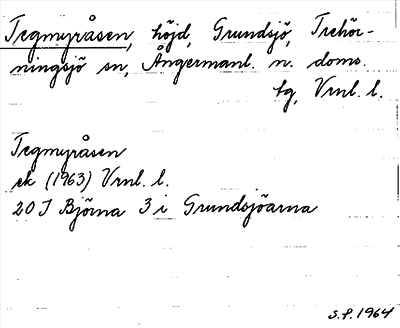 Tegmyråsen, höjd, Grundsjö, Trehör-
ningsjö sn, Ångermanl. n. doms.
tg, Vrnl. l.
Tegmyråsen
ek (1963) Vrnl. l.
20 I Björna 3 i Grundsjöarna
S.P. 1964